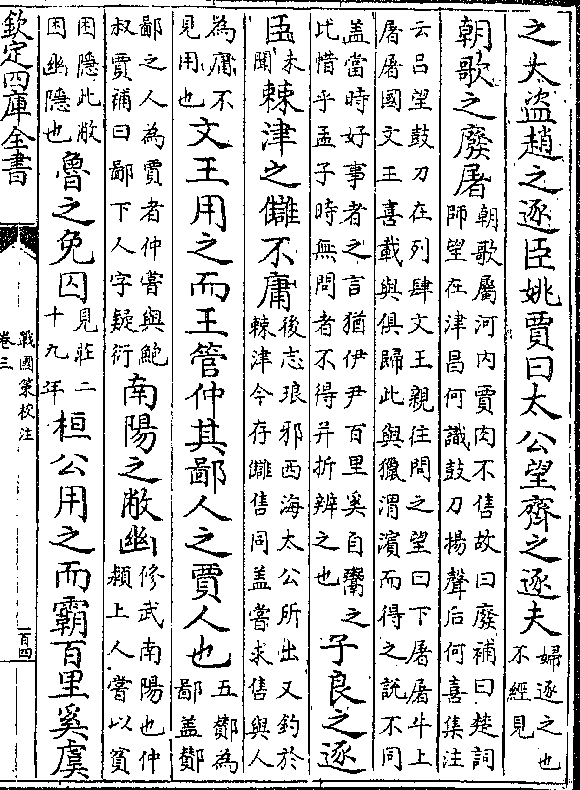 之大盗趙之逐臣姚賈曰太公望齊之逐夫婦逐之也不經見
朝歌之廢屠朝歌屬河内賈肉不售故曰廢補曰楚詞師望在津昌何識鼓刀揚聲后何喜集注
云吕望鼓刀在列肆文王親往問之望曰下屠屠牛上屠屠國文王喜載與俱歸此與獵渭濱而得之說不同
盖當時好事者之言猶伊尹百里奚自鬻之此惜乎孟子時無問者不得并折辨之也子良之逐
臣未聞棘津之讎不庸後志琅邪西海太公所出又釣於棘津今存讎售同盖嘗求售與人
為庸不見用也文王用之而王管仲其鄙人之賈人也五酇為鄙盖酇
鄙之人為賈者仲嘗與鮑叔賈補曰鄙下人字疑衍南陽之敝幽修武南陽也仲潁上人嘗以貧
困隱此敝困幽隱也魯之免囚見莊二十九年桓公用之而霸百里奚虞
欽定四庫全書
戰國策校注
卷三
一百四